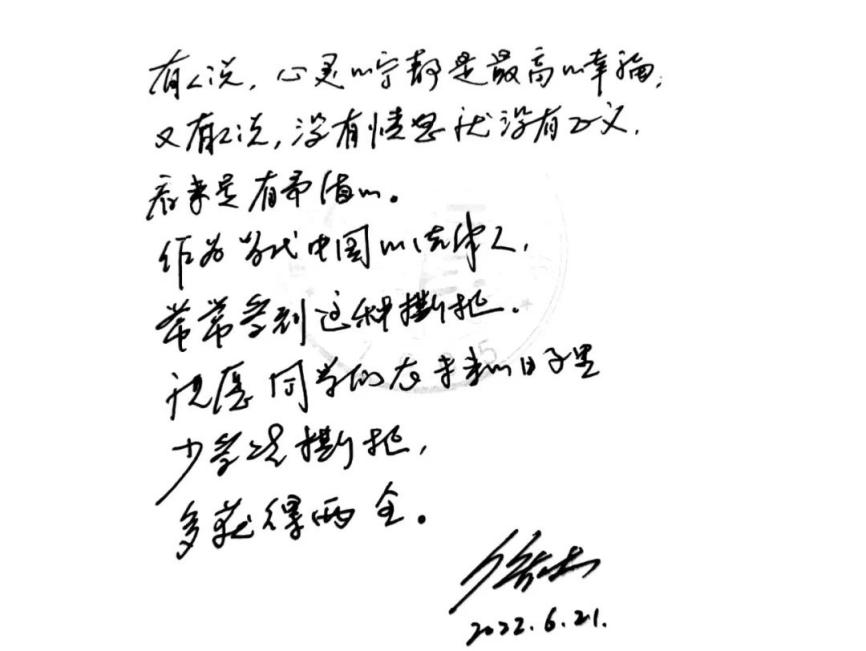 有人说，心灵的宁静是最高的幸福；
又有人说，没有愤怒就没有正义，
看来是有矛盾的。
作为当代中国的法律人，
常常受到这种撕扯。
祝愿同学们在未来的日子里
少受些撕扯，
多获得两全。
2022.6.21.